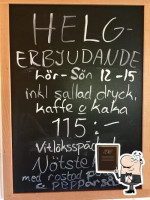 HELG-
ERBJUDANDE
Lör-Sön 12-15
inkl sallad, dryck,
kaffe & kaka
115:-
Vitlökssp
Nötste
med rostad p
& pepparså